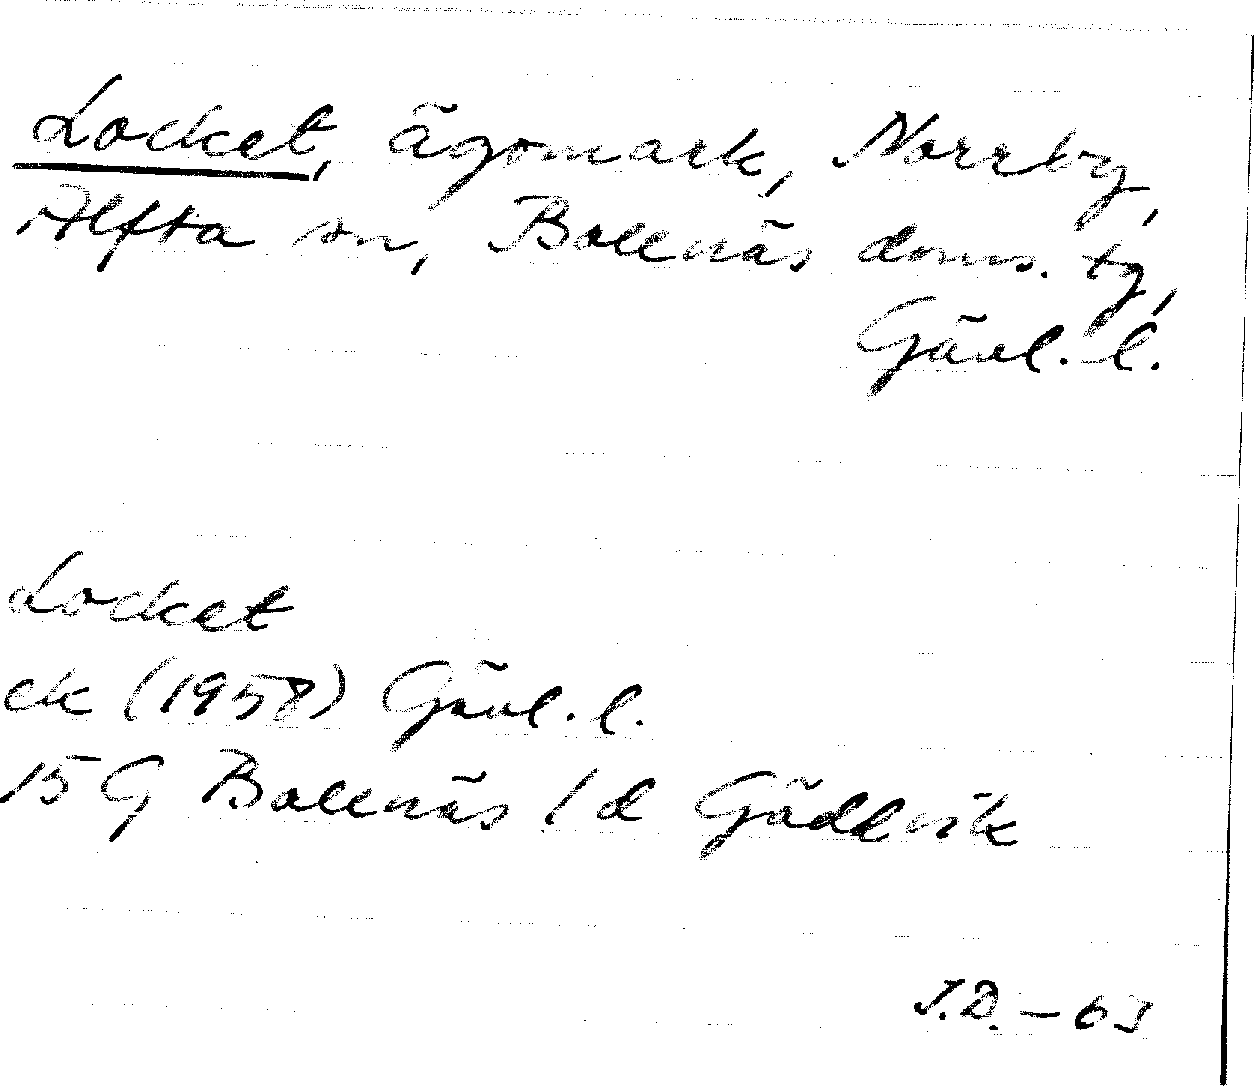 Locket, ägomark, Norrby,
Alfta sn, Bollnäs doms. tg,
Gävl. l.
Locket
ek (1958) Gävl. l.
15 G Bollnäs 1 d Gäddvik
J.D. - 63